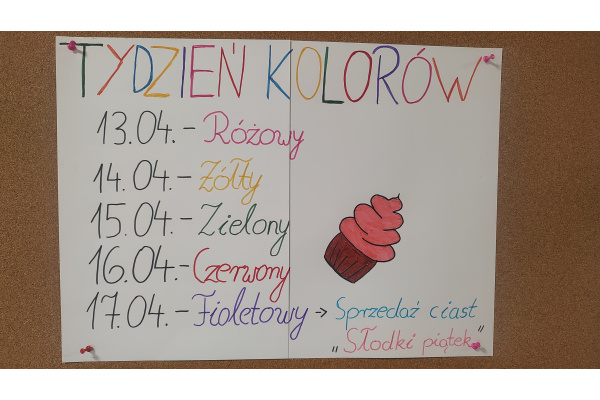 TYDZIEŃ KOLORÓW
13.04. - Różowy
14. 04. - Żółty
15.04. - Zielony
16.04. - Czerwony
17.04. - Fioletowy → Sprzedaż ciast
"Słodki piątek"